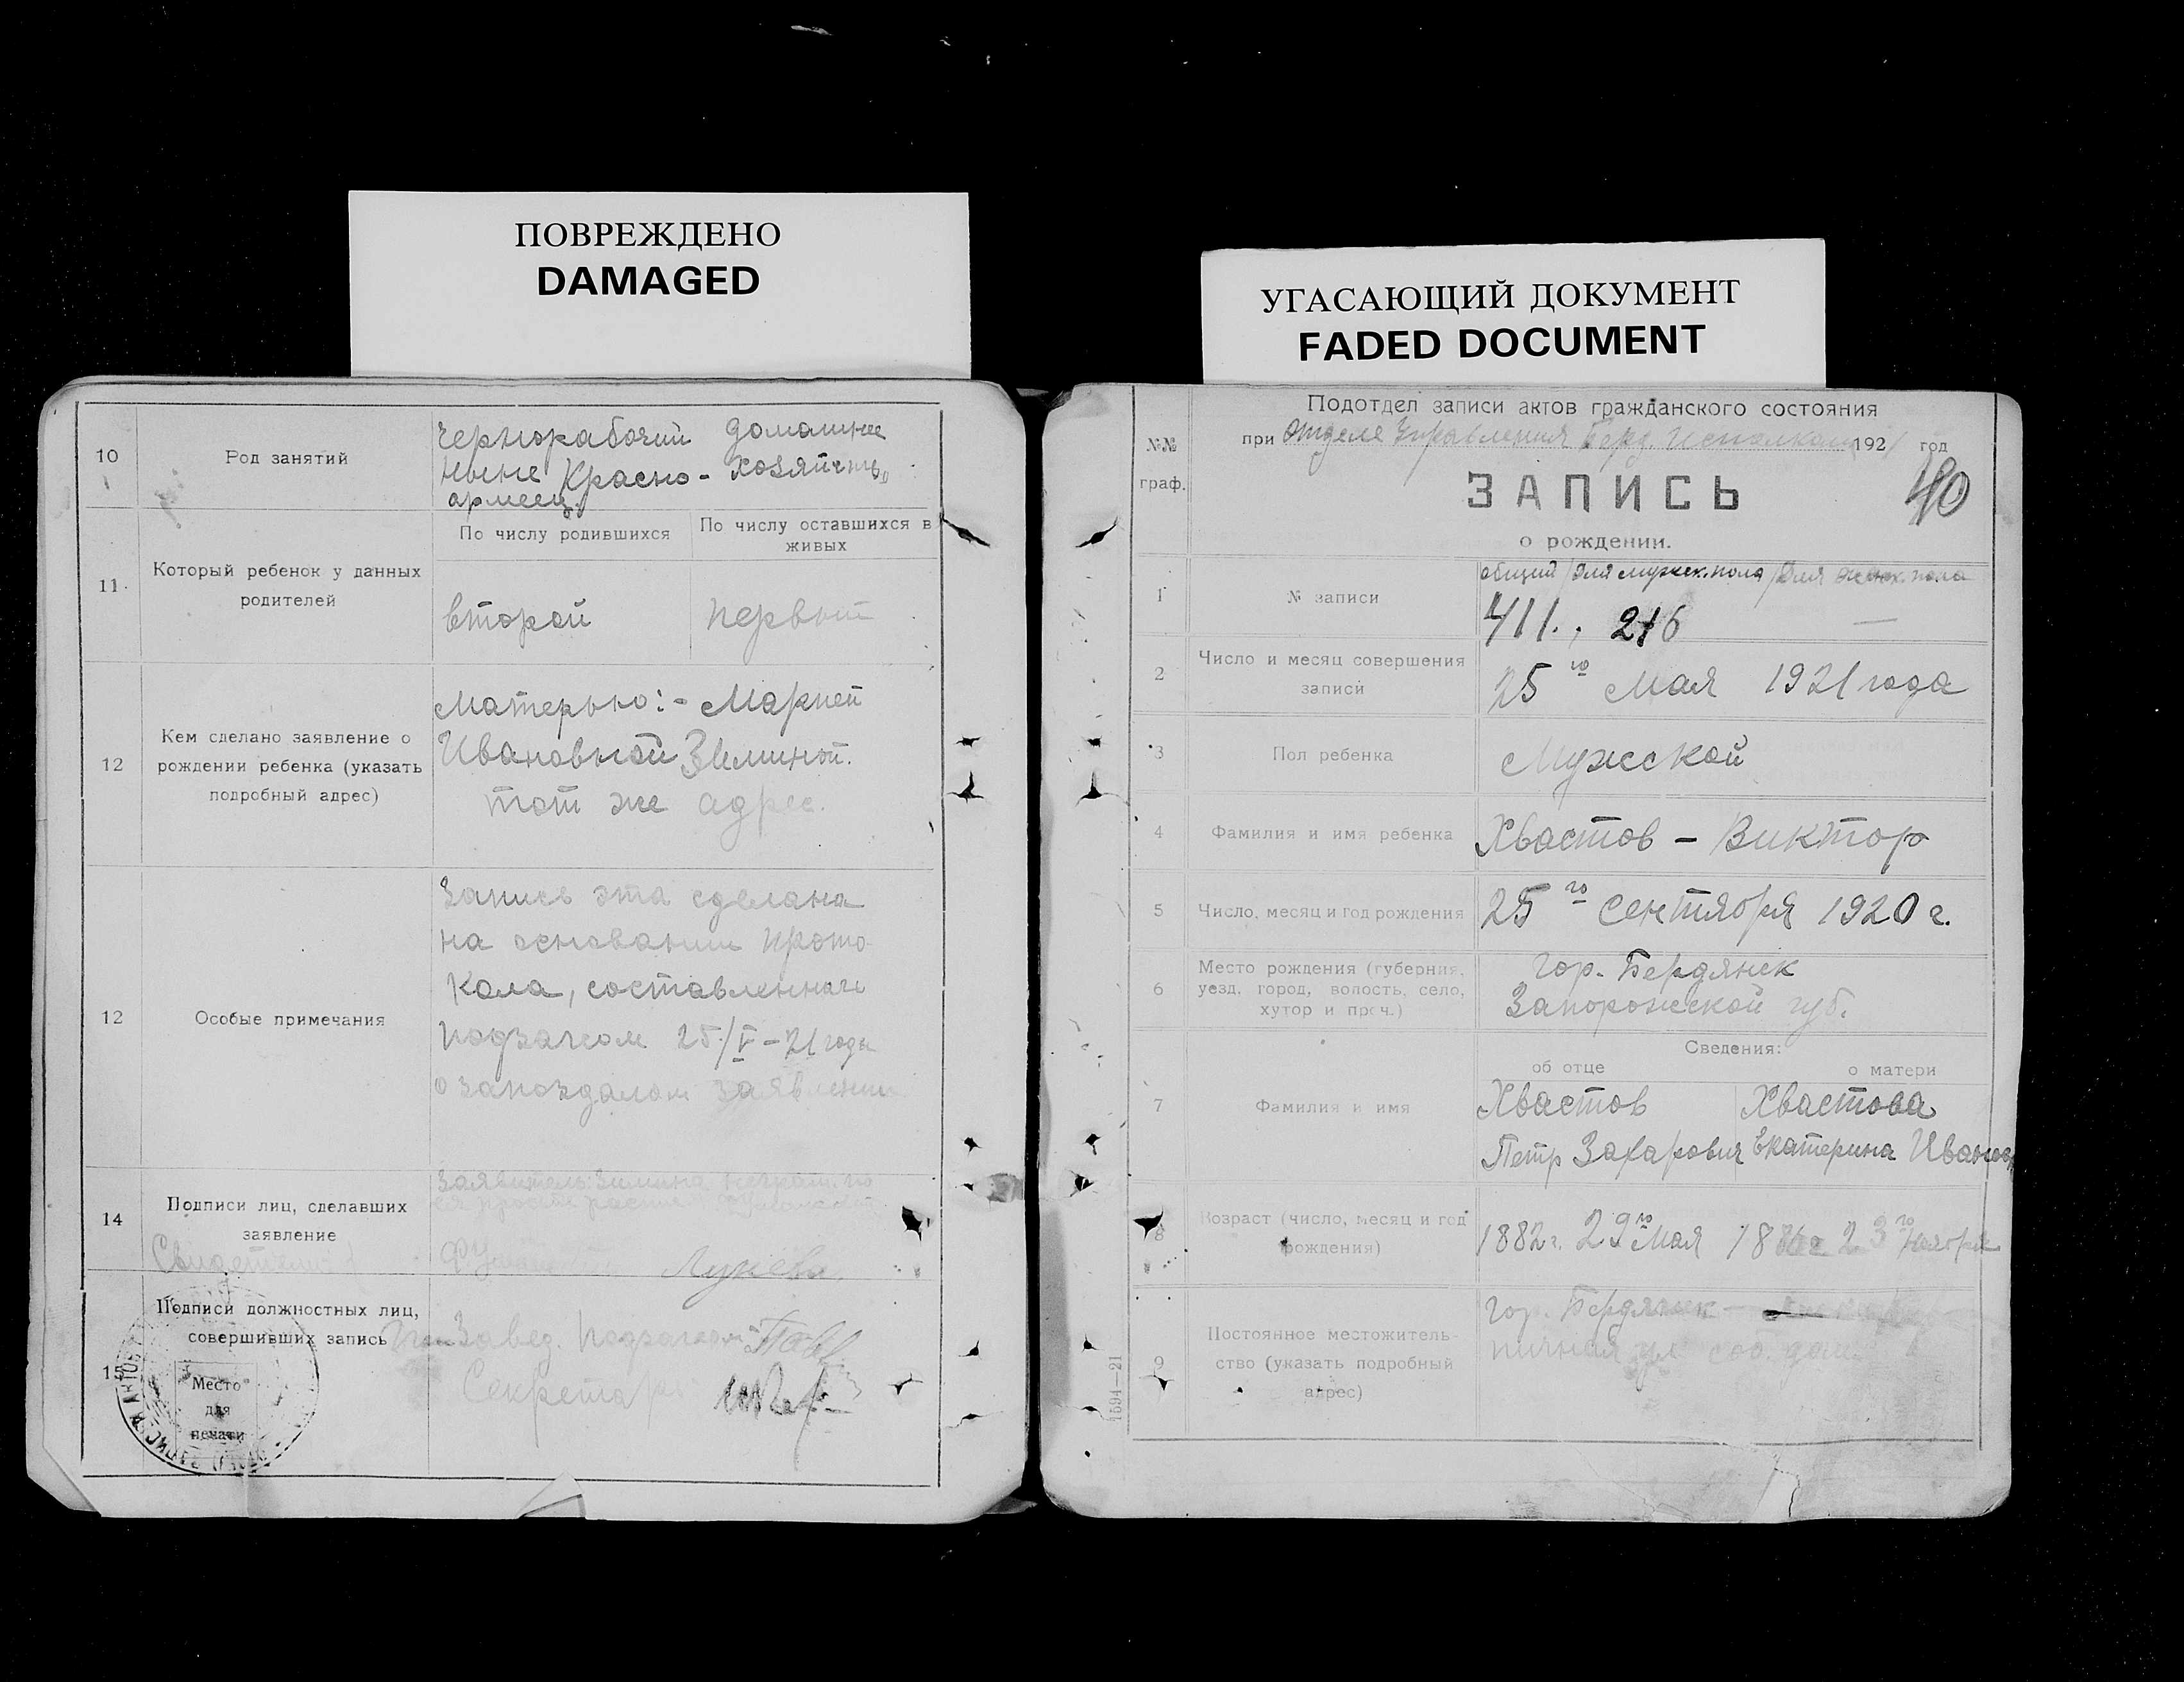 ПОВРЕЖДЕНО
DAMAGED
УГАСАЮЩИЙ ДОКУМЕНТ
FADED DOCUMENT
10
Род занятий
Чернорабочий
ныне Красно-
армеец.
домашнее
хозяйство
11.
Который ребенок у данных
родителей
По числу родившихся
По числу оставшихся в
живых
второй
первый
12
Кем сделано заявление о
рождении ребенка (указать
подробный адрес)
Матерью:- Марией
Ивановной Зиминой.
тот же адрес.
12
Особые примечания
Запись эта сделана
на основании прото-
кола, составленнаго
подзагсом 25/V-21 года
о запоздалом заявлении
14
Подписи лиц, сделавших
заявление
Свидетели
Заявитель: Зимина неграм. по
Лунева
15
Подписи должностных лиц,
совершивших запись
Завед. Подзагсом
Секретарь
Место
для
печати
№№
граф.
Подотдел записи актов гражданского состояния
при Отделе Управления Берд. Исполкома 1921 год
ЗАПИСЬ
40
о рождении.
1
№ записи
общий / для мужск. пола / для женск. пола
411., 216 —
2
Число и месяц совершения
записи
25го Мая 1921 года
3
Пол ребенка
Мужской
4
Фамилия и имя ребенка
Хвастов - Виктор
5
Число, месяц и год рождения
25го Сентября 1920 г.
6
Место рождения (губерния,
уезд, город, волость, село,
хутор и проч.)
гор. Бердянск
Запорожской губ.
Сведения:
об отце
о матери
7
Фамилия и имя
Хвастов
Петр Захарович
Хвастова
Екатерина Иванов
8
Возраст (число, месяц и год
рождения)
1882 г. 29го Мая
23го Ноября
9
Постоянное местожитель-
ство (указать подробный
адрес)
гор. Бердянск
ул. соб. дом
1594—21